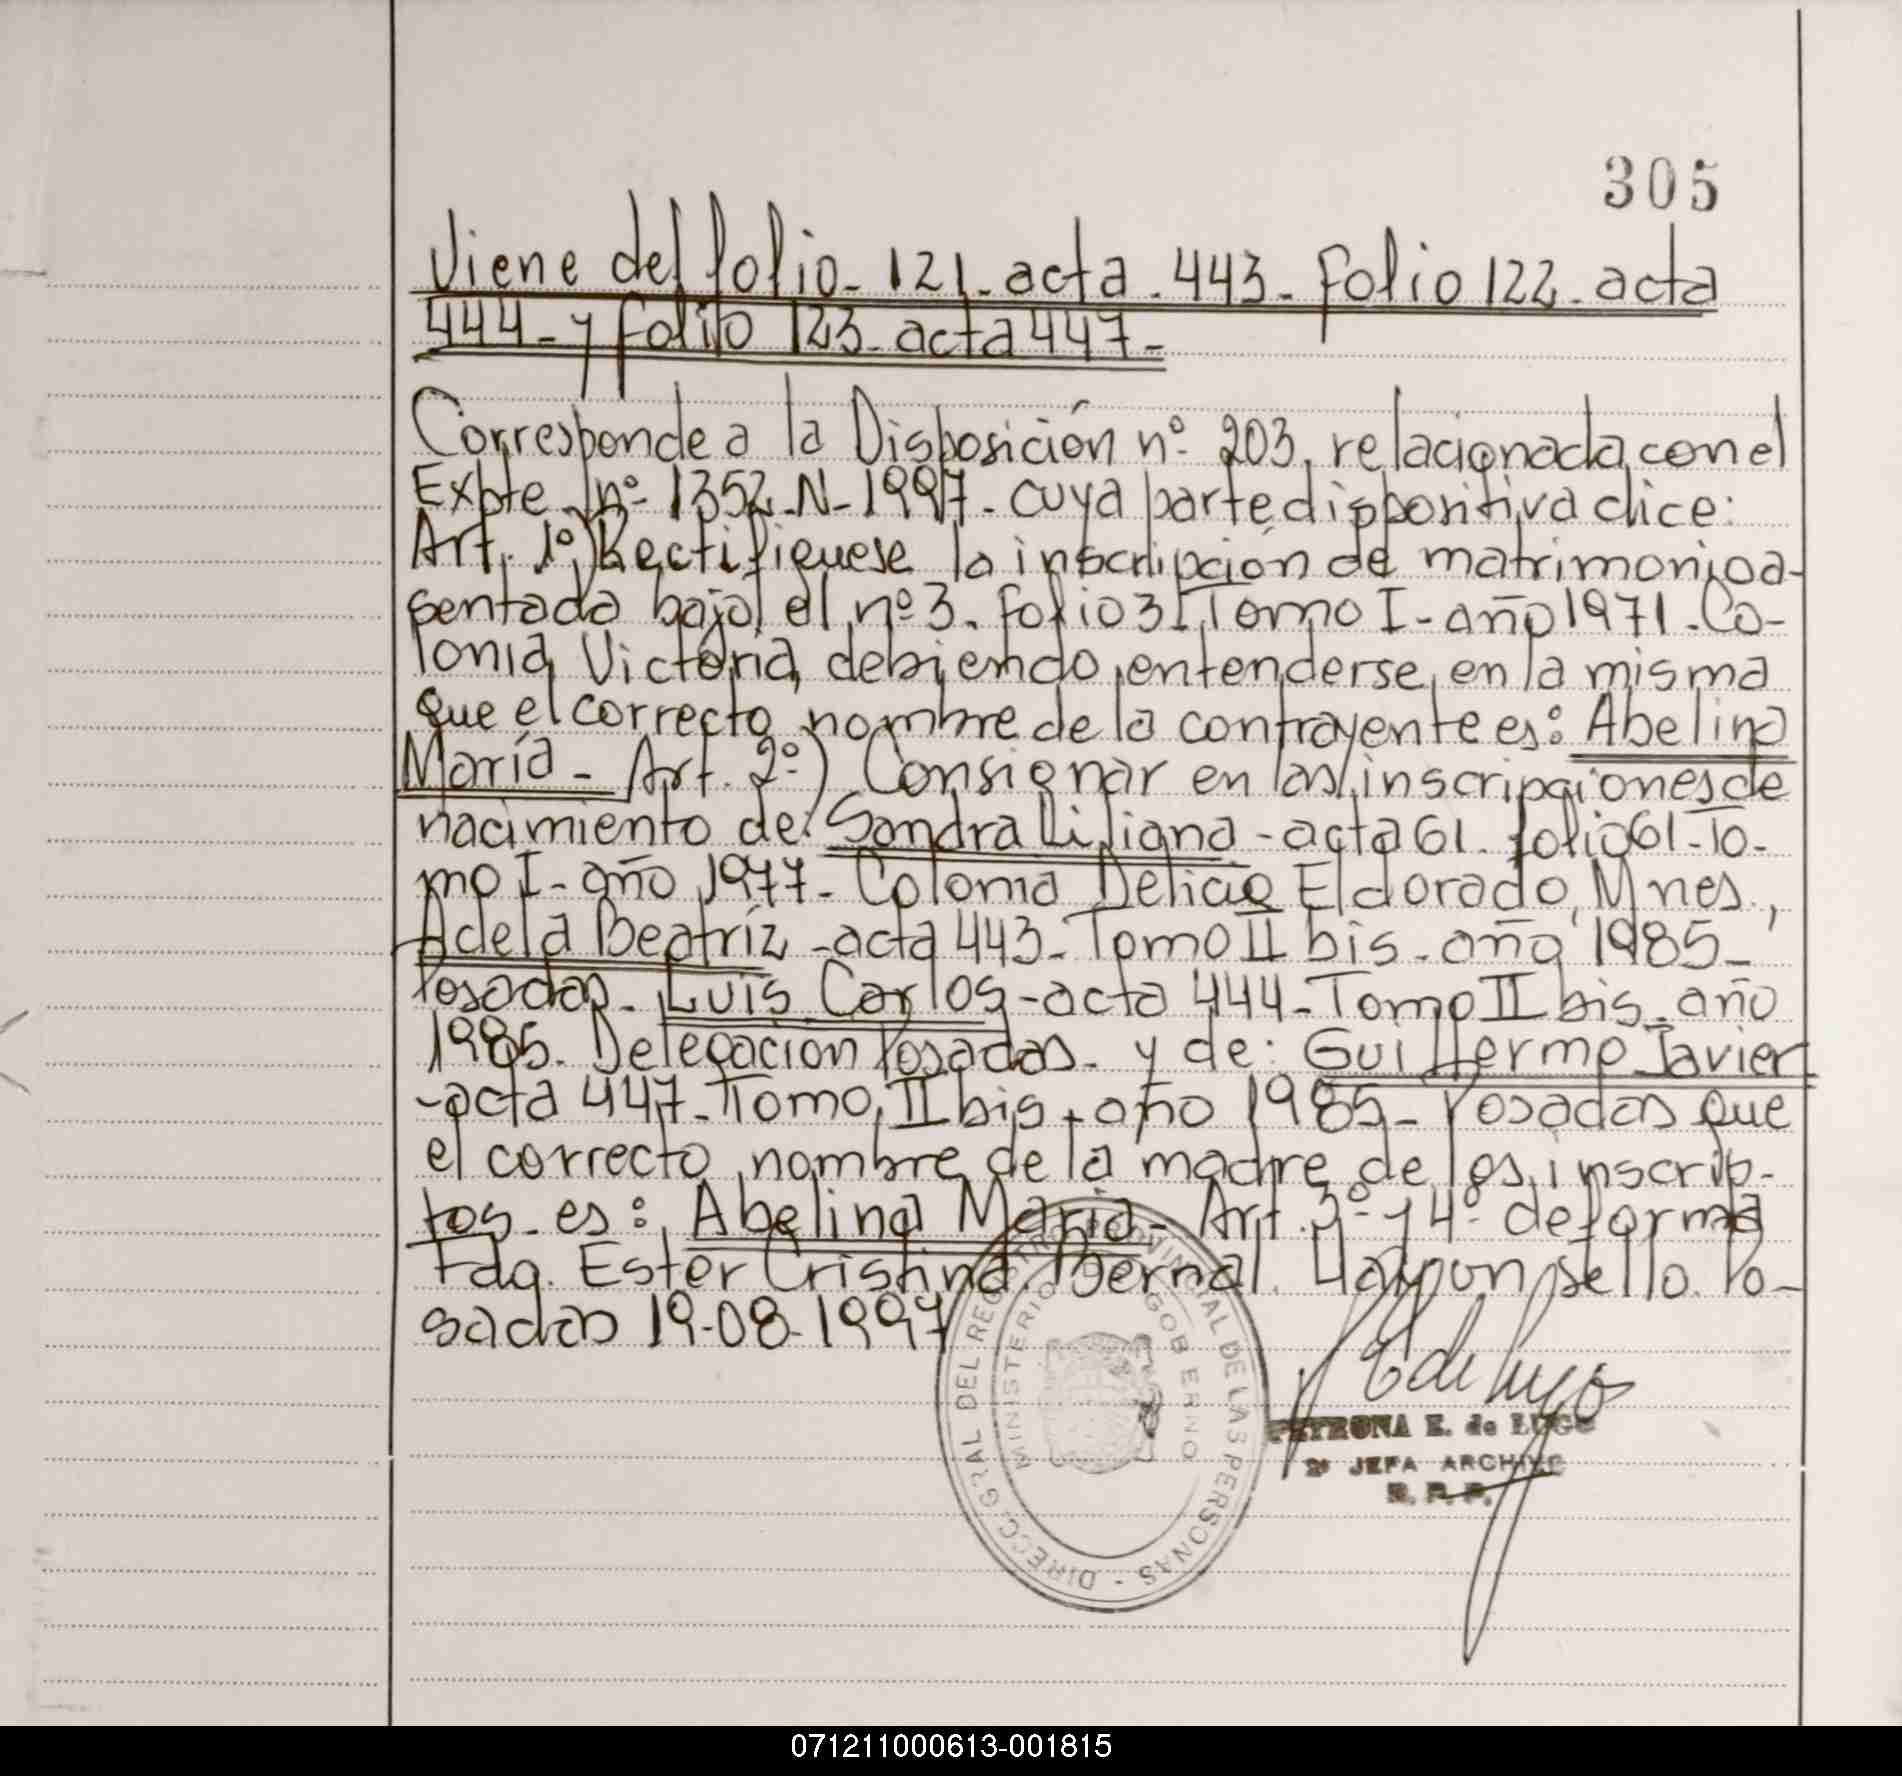 305
Viene del folio - 121 - acta - 443 - Folio 122 - acta
444 - y folio 123 - acta 447 -
Corresponde a la Disposición nº 203, relacionada con el
Expte nº 1352 - N - 1997 - cuya parte dispositiva dice:
Art. 1º) Rectifiquese la inscripción de matrimonio a-
sentada bajo el nº 3 - folio 3 - Tomo I - año 1971 - Co-
lonia Victoria, debiendo entenderse en la misma
que el correcto nombre de la contrayente es: Abelina
María - Art. 2º) Consignar en las inscripciones de
nacimiento de: Sandra Liliana - acta 61 - folio 61 - To-
mo I - año 1977 - Colonia Delicia Eldorado, Mnes.,
Adela Beatríz - acta 443 - Tomo II bis - año 1985 -
Posadas - Luis Carlos - acta 444 - Tomo II bis - año
1985 - Delegacion Posadas - y de: Guillermo Javier
- acta 447 - Tomo II bis - año 1985 - Posadas que
el correcto nombre de la madre de los inscrip-
tos - es: Abelina María - Art. 3º y 4º de forma
Fdo. Ester Cristina Bernal. Hay un sello. Po-
sadas 19-08-1997
DIRECC. GRAL DEL REGISTRO PROVINCIAL DE LAS PERSONAS -
MINISTERIO DE GOBIERNO
PETRONA E. de LUGO
2ª JEFA ARCHIVO
R. P. P.
071211000613-001815